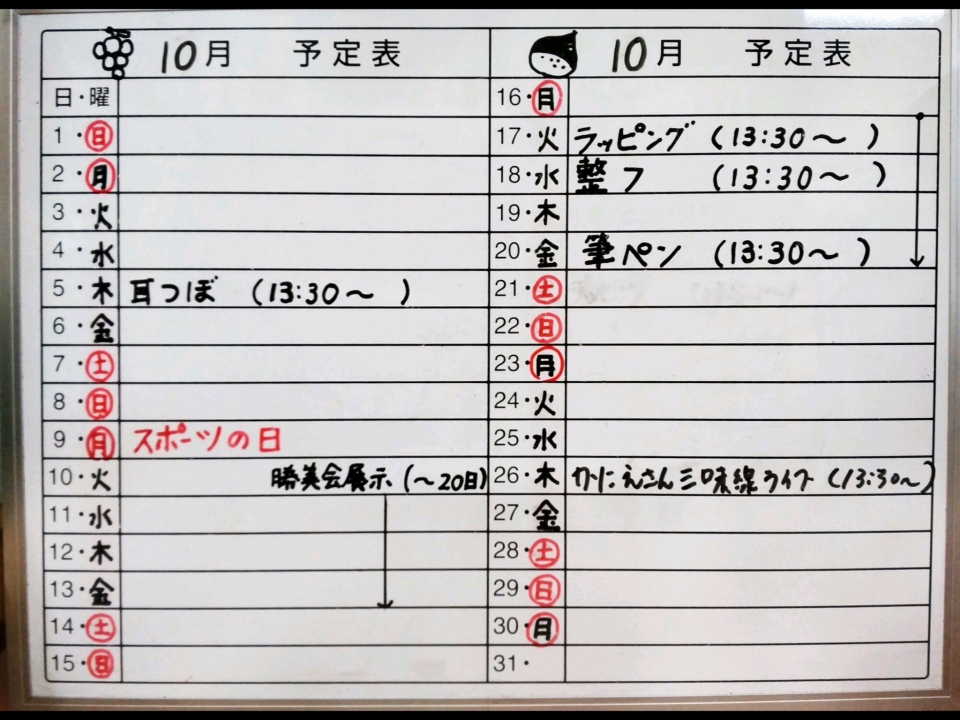 10月 予定表
日・曜
1・日
2・月
3・火
4・水
5・木 耳つぼ (13:30〜 )
6・金
7・土
8・日
9・月 スポーツの日
10・火 勝美会展示 (〜20日)
11・水
12・木
13・金
14・土
15・日
10月 予定表
16・月
17・火 ラッピング (13:30〜 )
18・水 整フ (13:30〜 )
19・木
20・金 筆ペン (13:30〜 )
21・土
22・日
23・月
24・火
25・水
26・木 かにえさん三味線ライブ (13:30〜)
27・金
28・土
29・日
30・月
31・